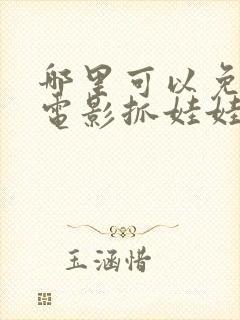 哪里可以免
电影抓娃娃
玉涵惜